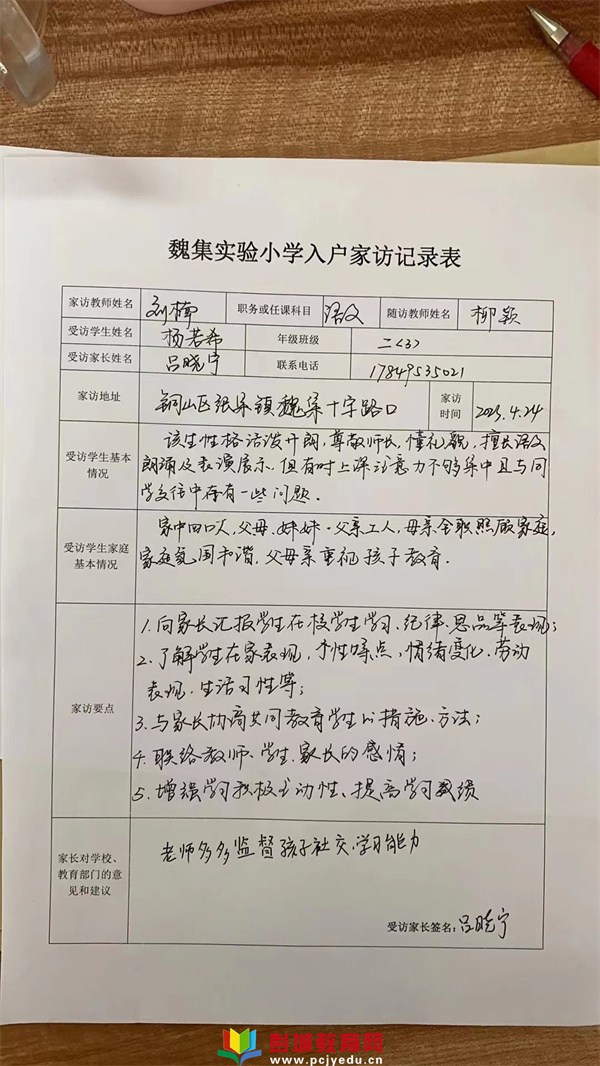 魏集实验小学入户家访记录表
家访教师姓名 刘楠 职务或任课科目 语文 随访教师姓名 柳颖
受访学生姓名 杨若希 年级班级 二(3)
受访家长姓名 吕晓宁 联系电话 17849535021
家访地址 铜山区张集镇魏集十字路口 家访时间 2023.4.24
受访学生基本情况
该生性格活泼开朗,尊敬师长,懂礼貌,擅长语文
朗诵及表演展示.但有时上课注意力不够集中且与同
学交往中存有一些问题.
受访学生家庭基本情况
家中四口人,父母.妹妹.父亲工人,母亲全职照顾家庭,
家庭氛围和谐,父母亲重视孩子教育.
家访要点
1.向家长汇报学生在校学生学习、纪律、思品等表现;
2.了解学生在家表现,个性特点,情绪变化、劳动
表现、生活习性等;
3.与家长协商共同教育学生的措施、方法;
4.联络教师、学生、家长的感情;
5.增强学习积极主动性、提高学习成绩
家长对学校、教育部门的意见和建议
老师多多监督孩子社交、学习能力
受访家长签名:吕晓宁
彭城教育网
www.pcjyedu.cn